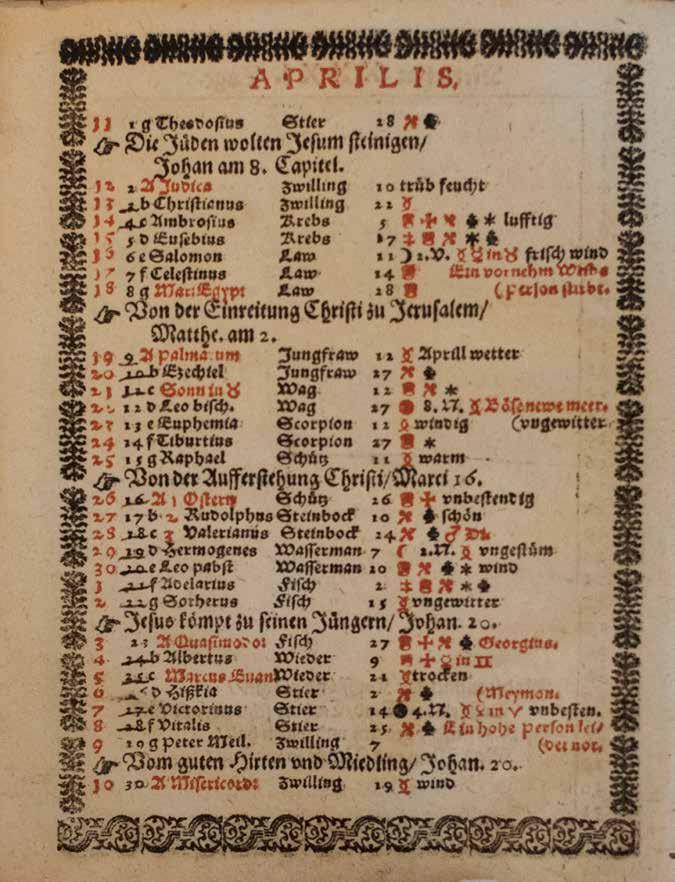 APRILIS.
11 1 g Theodosius Stier 28
Die Jüden wolten Jesum steinigen/
Johan am 8. Capitel.
12 2 A Judica Zwilling 10 trüb feucht
13 3 b Christianus Zwilling 22
14 4 c Ambrosius Krebs 5 lufftig
15 5 d Eusebius Krebs 17
16 6 e Salomon Law 1 1. V. in ♉ frisch wind
17 7 f Celestinus Law 14 Ein vornehm Weibs
18 8 g Mar: Egypt Law 28 (person stirbt.
Von der Einreitung Christi zu Jerusalem/
Matthe. am 2.
19 9 A Palmarum Jungfraw 12 Aprill wetter
20 10 b Ezechiel Jungfraw 27
21 11 c Sonn in ♉ Wag 12
22 12 d Leo bisch. Wag 27 8. N. Böse newe meer.
23 13 e Euphemia Scorpion 12 windig (vngewitter
24 14 f Tiburtius Scorpion 27
25 15 g Raphael Schütz 11 warm
Von der Aufferstehung Christi/ Marci 16.
26 16 A Ostern Schütz 26 vnbestendig
27 17 b 2 Rudolphus Steinbock 10 schön
28 18 c 3 Valerianus Steinbock 24 ♂
29 19 d Hermogenes Wasserman 7 1. N. vngestüm
30 20 e Leo pabst Wasserman 20 wind
1 21 f Adelarius Fisch 2
2 22 g Sotherus Fisch 15 vngewitter
Jesus kömpt zu seinen Jüngern/ Johan. 20.
3 23 A Quasimodo: Fisch 27 Georgius.
4 24 b Albertus Wieder 9 ♀ in II
5 25 c Marcus Euan Wieder 21 trocken
6 26 d Hißkia Stier 2 (Meymon.
7 27 e Victorinus Stier 14 4. N. in ♈ vnbesten.
8 28 f Vitalis Stier 25 Ein hohe Person lei/
9 29 g Peter Meil. Zwilling 7 (det not.
Vom guten Hirten vnd Miedling/ Johan. 20.
10 30 A Misericord: Zwilling 19 wind